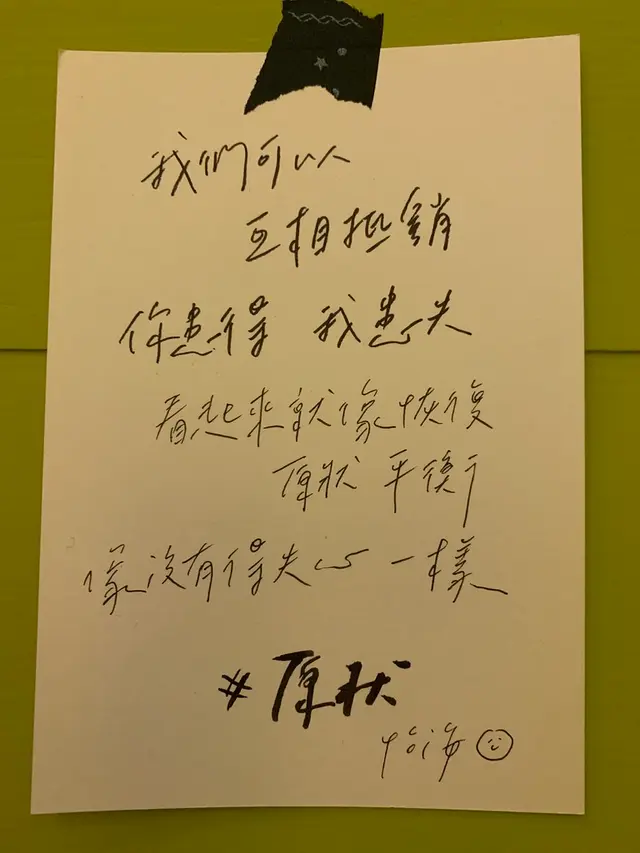 我們可以
互相抵銷
你患得 我患失
看起來就像恢復
原狀 平衡
像沒有得失心 一樣
#原狀
怡海